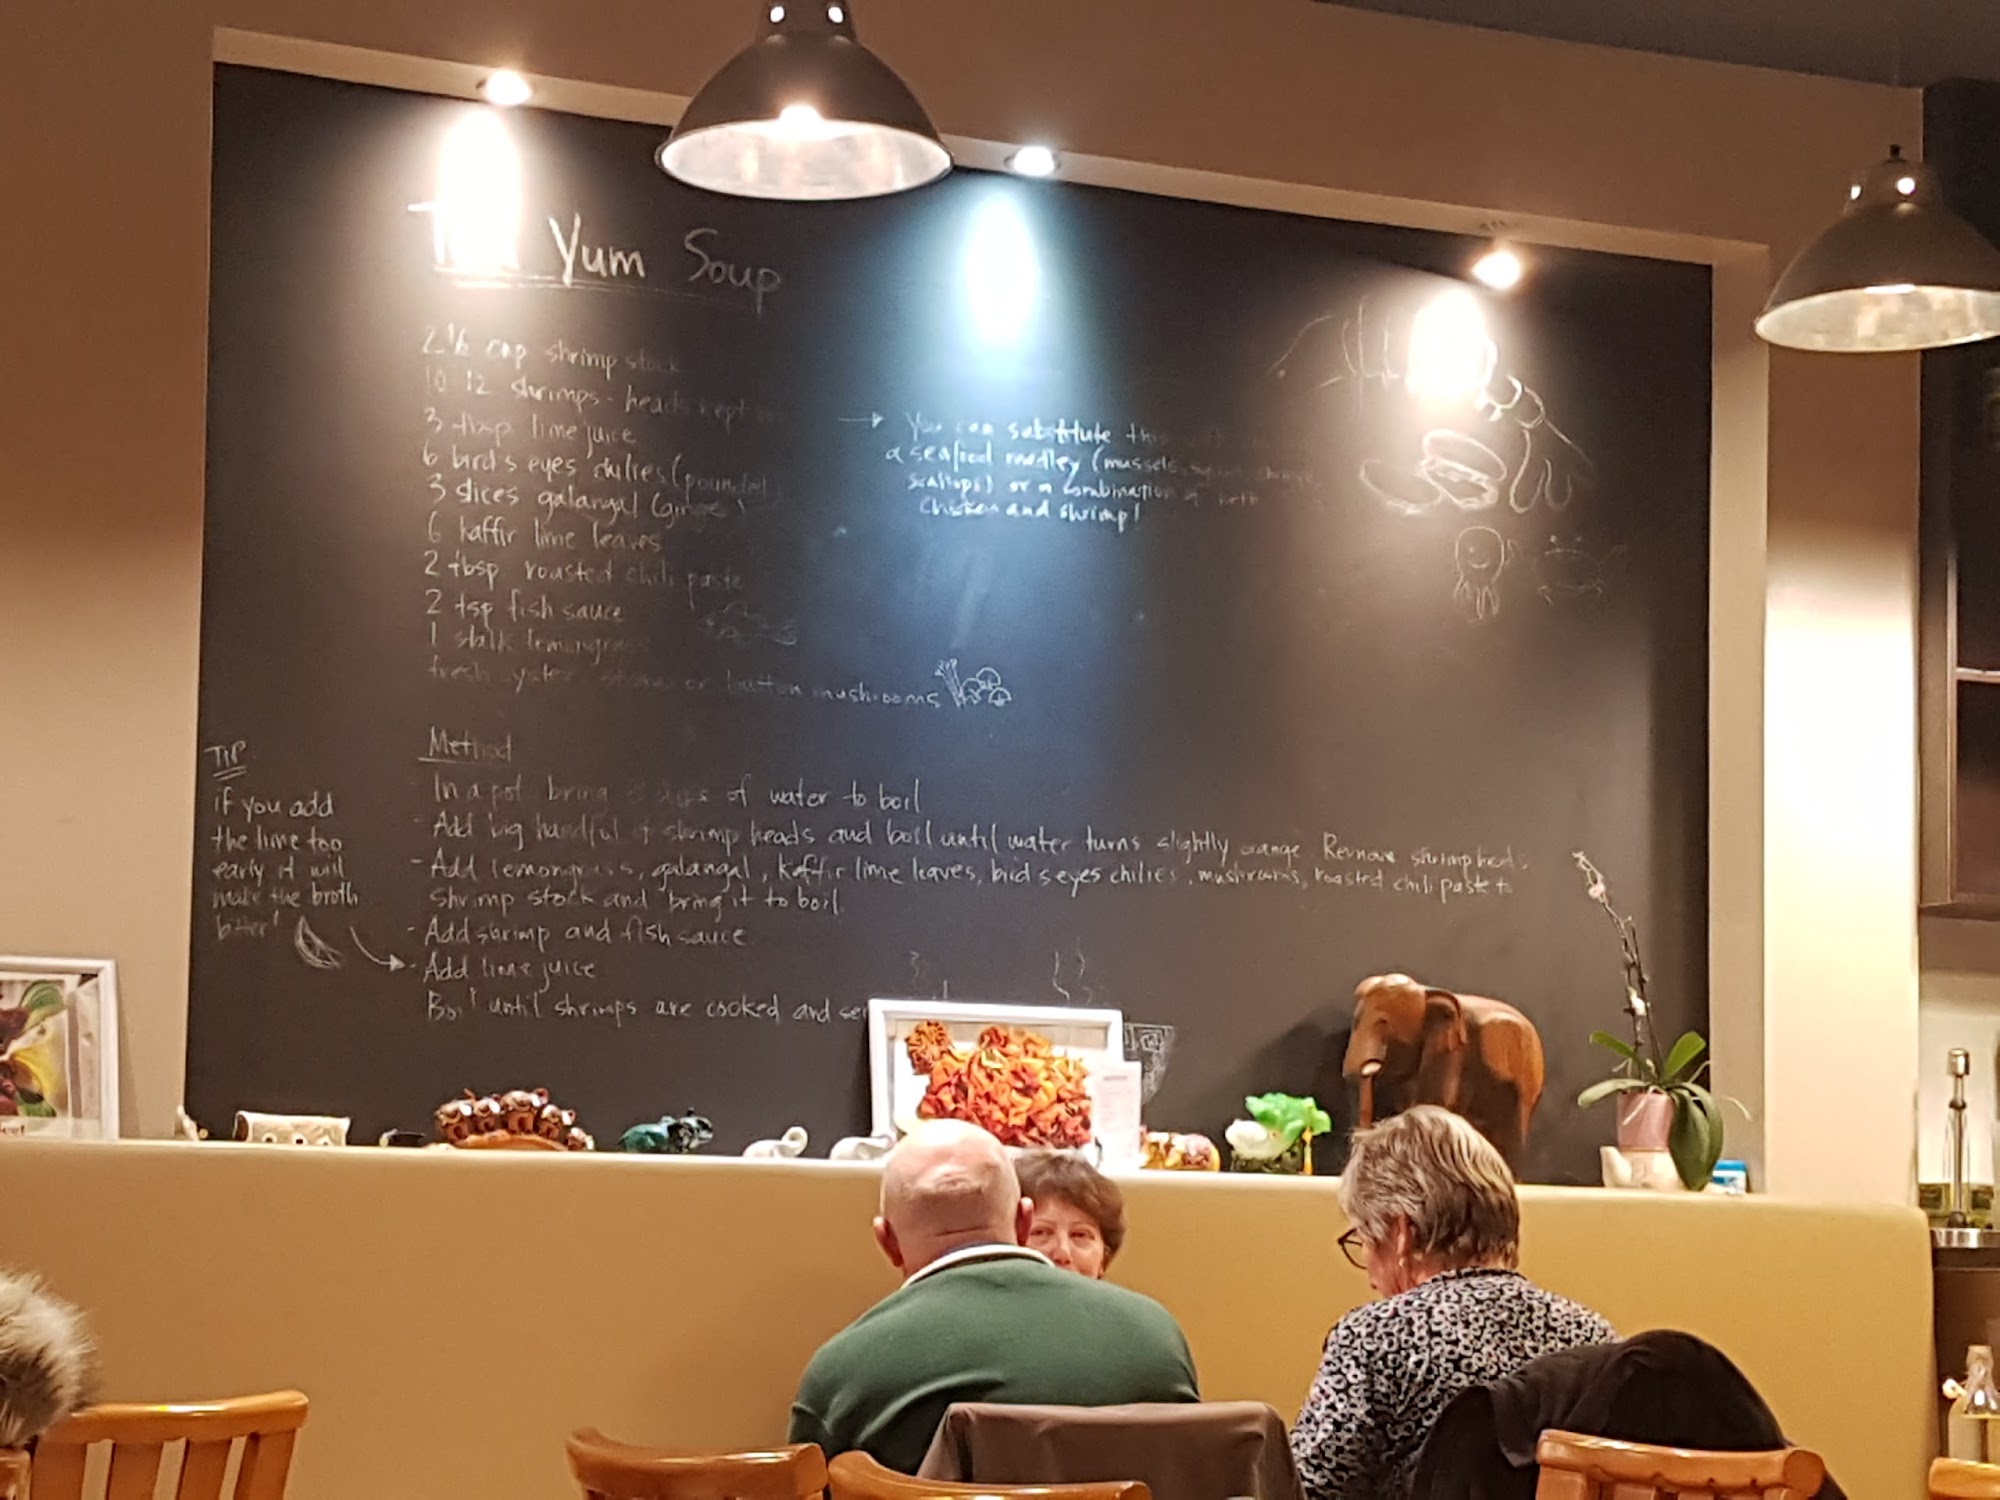 Yum Soup
cup shrimp stock
10 12 shrimps - heads kept
3 tbsp lime juice
6 bird's eyes chilies (pounded)
3 slices galangal (ginger)
6 kaffir lime leaves
2 tbsp roasted chili paste
2 tsp fish sauce
1 stalk lemongrass
fresh oyster or button mushrooms
You can substitute this
a seafood medley (mussels,
scallops) or a combination of both
chicken and shrimp!
Method
In a pot bring of water to boil
- Add big handful of shrimp heads and boil until water turns slightly orange. Remove shrimp heads.
- Add lemongrass, galangal, kaffir lime leaves, birds eyes chilies, mushrooms, roasted chili paste to
shrimp stock and bring it to boil.
- Add shrimp and fish sauce
- Add lime juice
Boil until shrimps are cooked and
TIP
if you add
the lime too
early it will
make the broth
bitter!